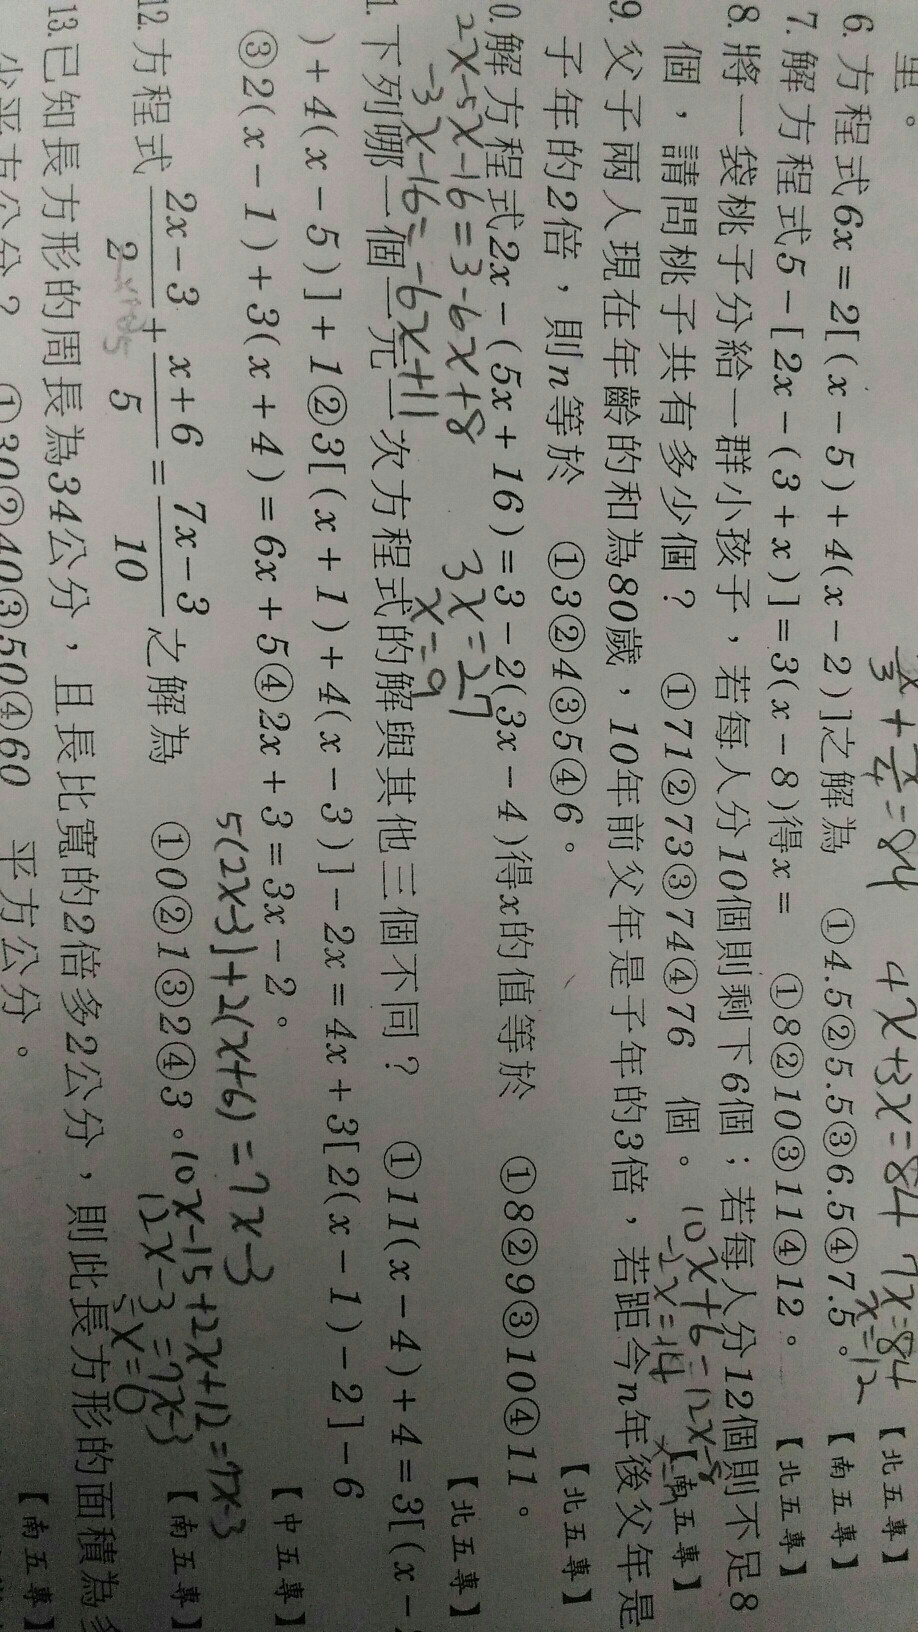 里。
x/3 + x/4 = 84 4x+3x=84 7x=84
x=12
【北五專】
6.方程式6x=2[(x-5)+4(x-2)]之解為 ①4.5②5.5③6.5④7.5。【南五專】
7.解方程式5-[2x-(3+x)]=3(x-8)得x= ①8②10③11④12。【北五專】
8.將一袋桃子分給一群小孩子，若每人分10個則剩下6個；若每人分12個則不足8
個，請問桃子共有多少個？ ①71②73③74④76 個。【南五專】
10x+6=12x-8
-2x=-14
9.父子兩人現在年齡的和為80歲，10年前父年是子年的3倍，若距今n年後父年是
子年的2倍，則n等於 ①3②4③5④6。【北五專】
0.解方程式2x-(5x+16)=3-2(3x-4)得x的值等於 ①8②9③10④11。
2x-5x-16=3-6x+8 3x=27
-3x-16=-6x+11 x=9
【北五專】
1.下列哪一個一元一次方程式的解與其他三個不同？ ①11(x-4)+4=3[(x-
)+4(x-5)]+1②3[(x+1)+4(x-3)]-2x=4x+3[2(x-1)-2]-6
③2(x-1)+3(x+4)=6x+5④2x+3=3x-2。【中五專】
5(2x-3)+2(x+6)=7x-3
12.方程式 (2x-3)/2 + (x+6)/5 = (7x-3)/10 之解為 ①0②1③2④3。【南五專】
10x-15+2x+12=7x-3
12x-3=7x-3
x=0
13.已知長方形的周長為34公分，且長比寬的2倍多2公分，則此長方形的面積為
少平方公分？ ①30②40③50④60 平方公分。【南五專】